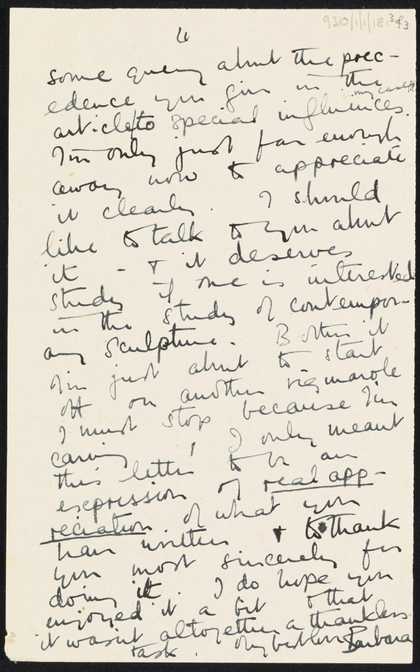 9310/1/1/18 343
6
some query about the prec-
edence you give in the
article to special influences. my
I'm only just far enough
away now to appreciate
it clearly. I should
like to talk to you about
it - & it deserves
study if one is interested
in the study of contempor-
ary sculpture. Bother it
I'm just about to start
off on another rigmarole
I must stop because I'm
carving! I only meant
this letter to be an
expression of real app-
reciation of what you
have written & to thank
you most sincerely for
doing it. I do hope you
enjoyed it a bit & that
it wasn't altogether a thankless
task. My best love Barbara